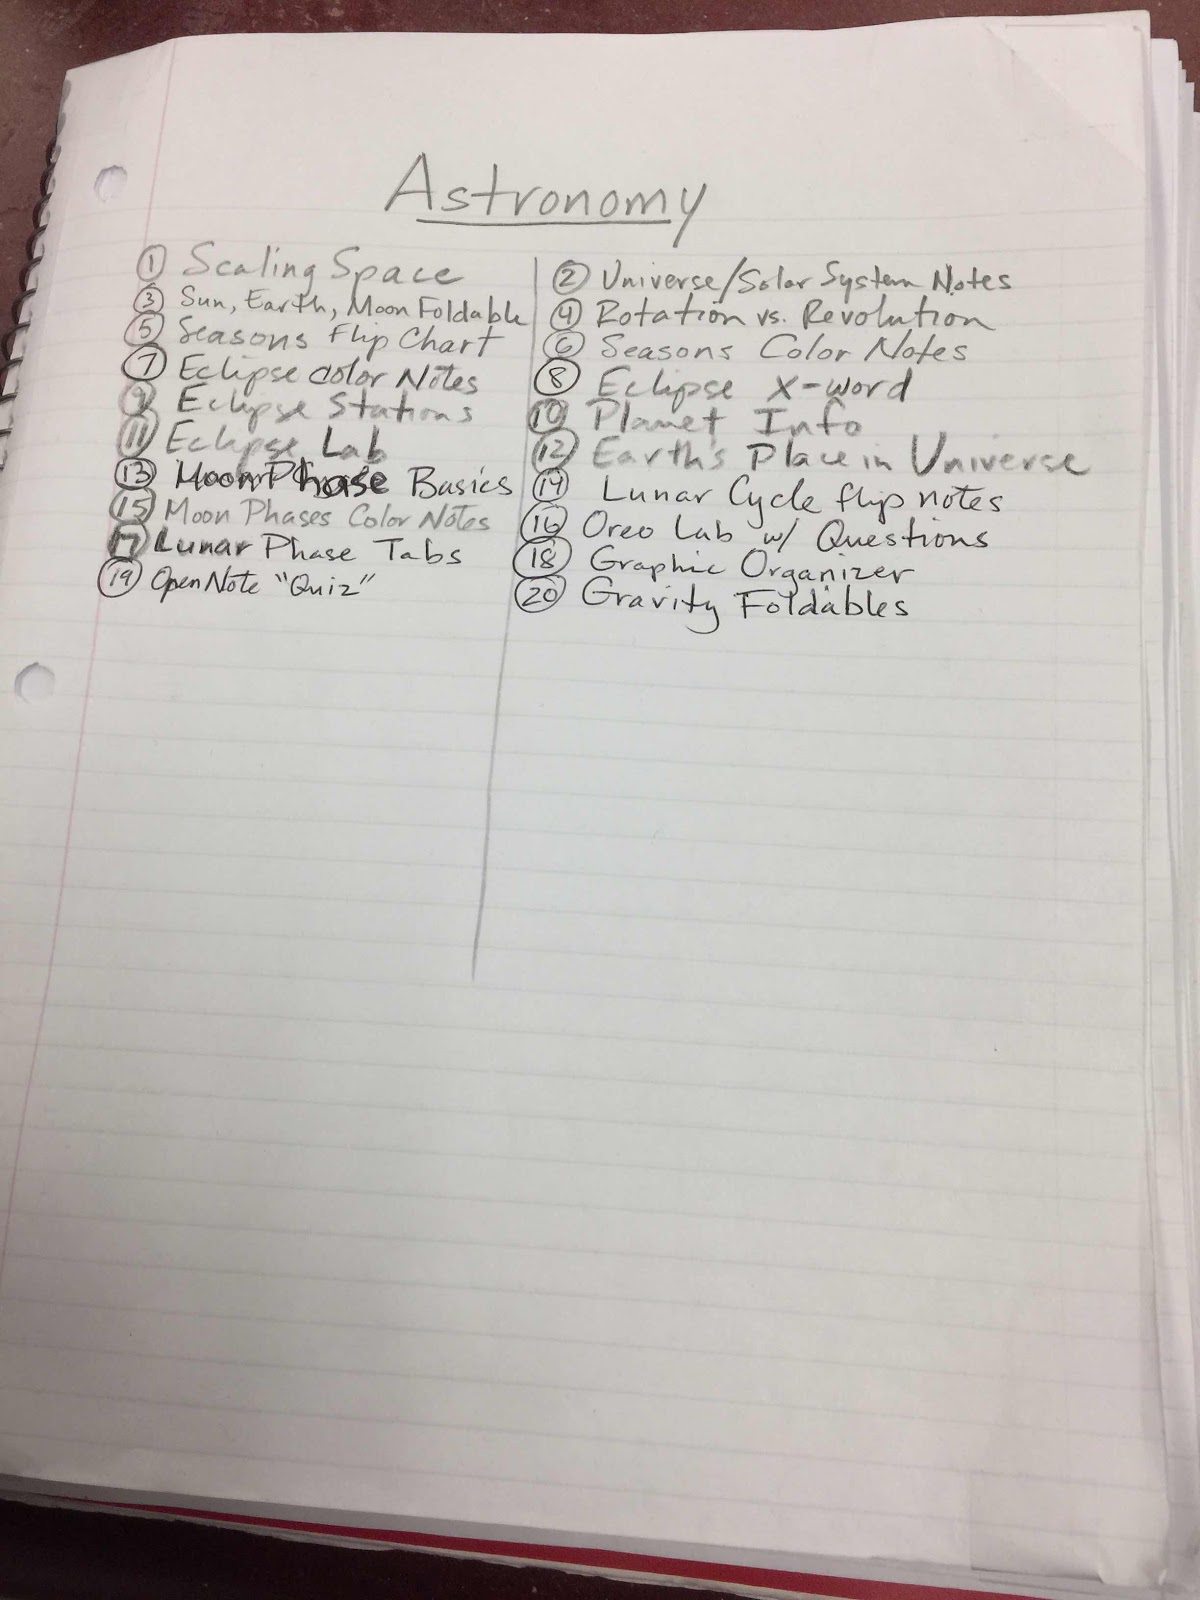 Astronomy
① Scaling Space
② Universe/Solar System Notes
③ Sun, Earth, Moon Foldable
④ Rotation vs. Revolution
⑤ Seasons Flip Chart
⑥ Seasons Color Notes
⑦ Eclipse color Notes
⑧ Eclipse X-word
⑨ Eclipse Stations
⑩ Planet Info
⑪ Eclipse Lab
⑫ Earth's Place in Universe
⑬ Moon Phase Basics
⑭ Lunar Cycle flip notes
⑮ Moon Phases Color Notes
⑯ Oreo Lab w/ Questions
⑰ Lunar Phase Tabs
⑱ Graphic Organizer
⑲ Open Note "Quiz"
⑳ Gravity Foldables